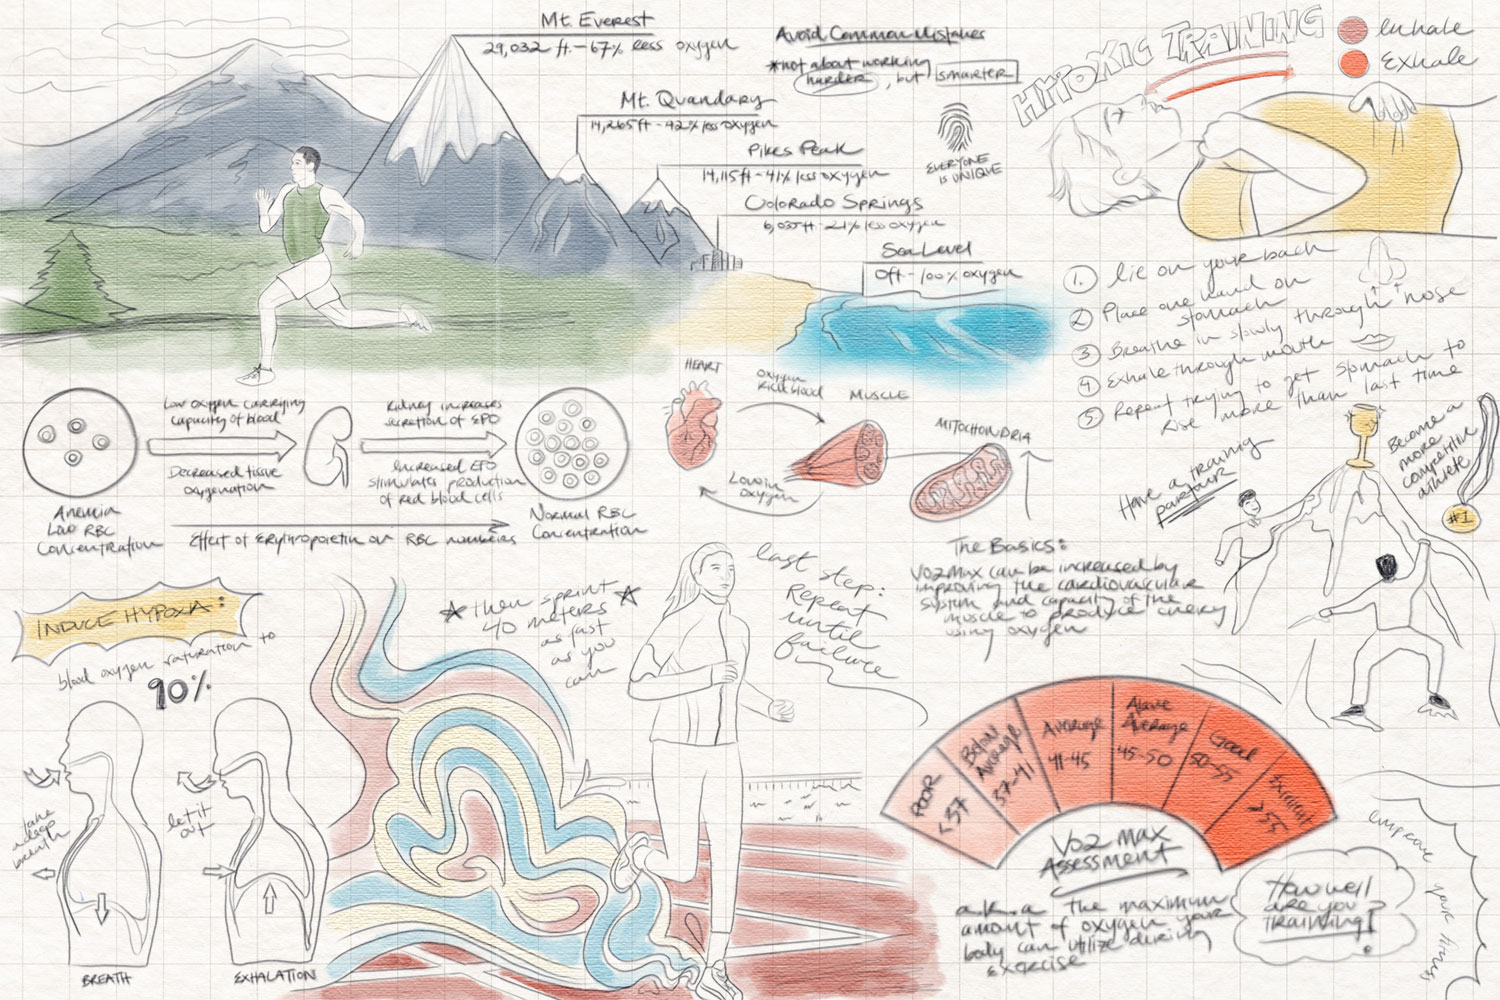 Mt. Everest
29,032 ft. - 67% less oxygen
Mt. Quandary
14,265 ft - 42% less oxygen
Pikes Peak
14,115 ft - 41% less oxygen
Colorado Springs
6,035 ft - 21% less oxygen
Sea Level
0 ft - 100% oxygen
Avoid Common Mistakes
*not about working
harder, but smarter
EVERYONE
IS UNIQUE
TRAINING
Inhale
Exhale
1. lie on your back
2 Place one hand on
stomach
3 Breathe in slowly through nose
4 Exhale through mouth
5 Repeat trying to get stomach to
rise more than last time
Low oxygen carrying
capacity of blood
Decreased tissue
oxygenation
Kidney increases
secretion of EPO
Increased EPO
stimulates production
of red blood cells
Anemia
Low RBC
Concentration
Effect of Erythropoietin on RBC numbers
Normal RBC
Concentration
HEART
Oxygen
Rich blood
MUSCLE
Low in
oxygen
MITOCHONDRIA
The Basics:
VO2 Max can be increased by
improving the cardiovascular
system and capacity of the
muscle to produce energy
using oxygen
Have a training
partner
Become a
more
competitive
athlete
#1
INDUCE HYPOXIA:
blood oxygen saturation to
90%
take
a deep
breath
let it
out
BREATH
EXHALATION
then sprint
40 meters
as fast
as you
can
last step:
Repeat
until
failure
POOR
<37
Below
Average
37-41
Average
41-45
Above
Average
45-50
Good
50-55
Excellent
>55
VO2 Max
Assessment
a.k.a the maximum
amount of oxygen your
body can utilize during
exercise
How well
are you
training?!
improve
your fitness